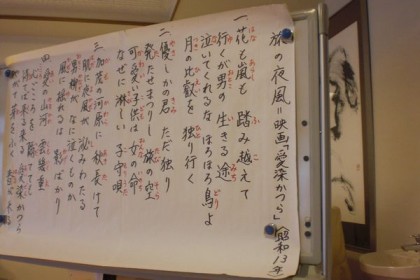 旅の夜風=映画「愛染かつら」(昭和13年)
一、花も嵐も 踏み越えて
行くが男の 生きる途
泣いてくれるな ほろほろ鳥よ
月の比叡を 独り行く
二、優しかの君 ただ独り
発たせまつりし 旅の空
可愛い子供は 女の命
なぜに淋しい 子守唄
三、加茂の河原に 秋長けて
肌に夜風が 沁みわたる
男柳が なに泣くものか
風に揺れるは 影ばかり
四、愛の山河 雲幾重
心ごころを 隔てても
待てば来る来る 愛染かつら
やがて芽をふく 春が